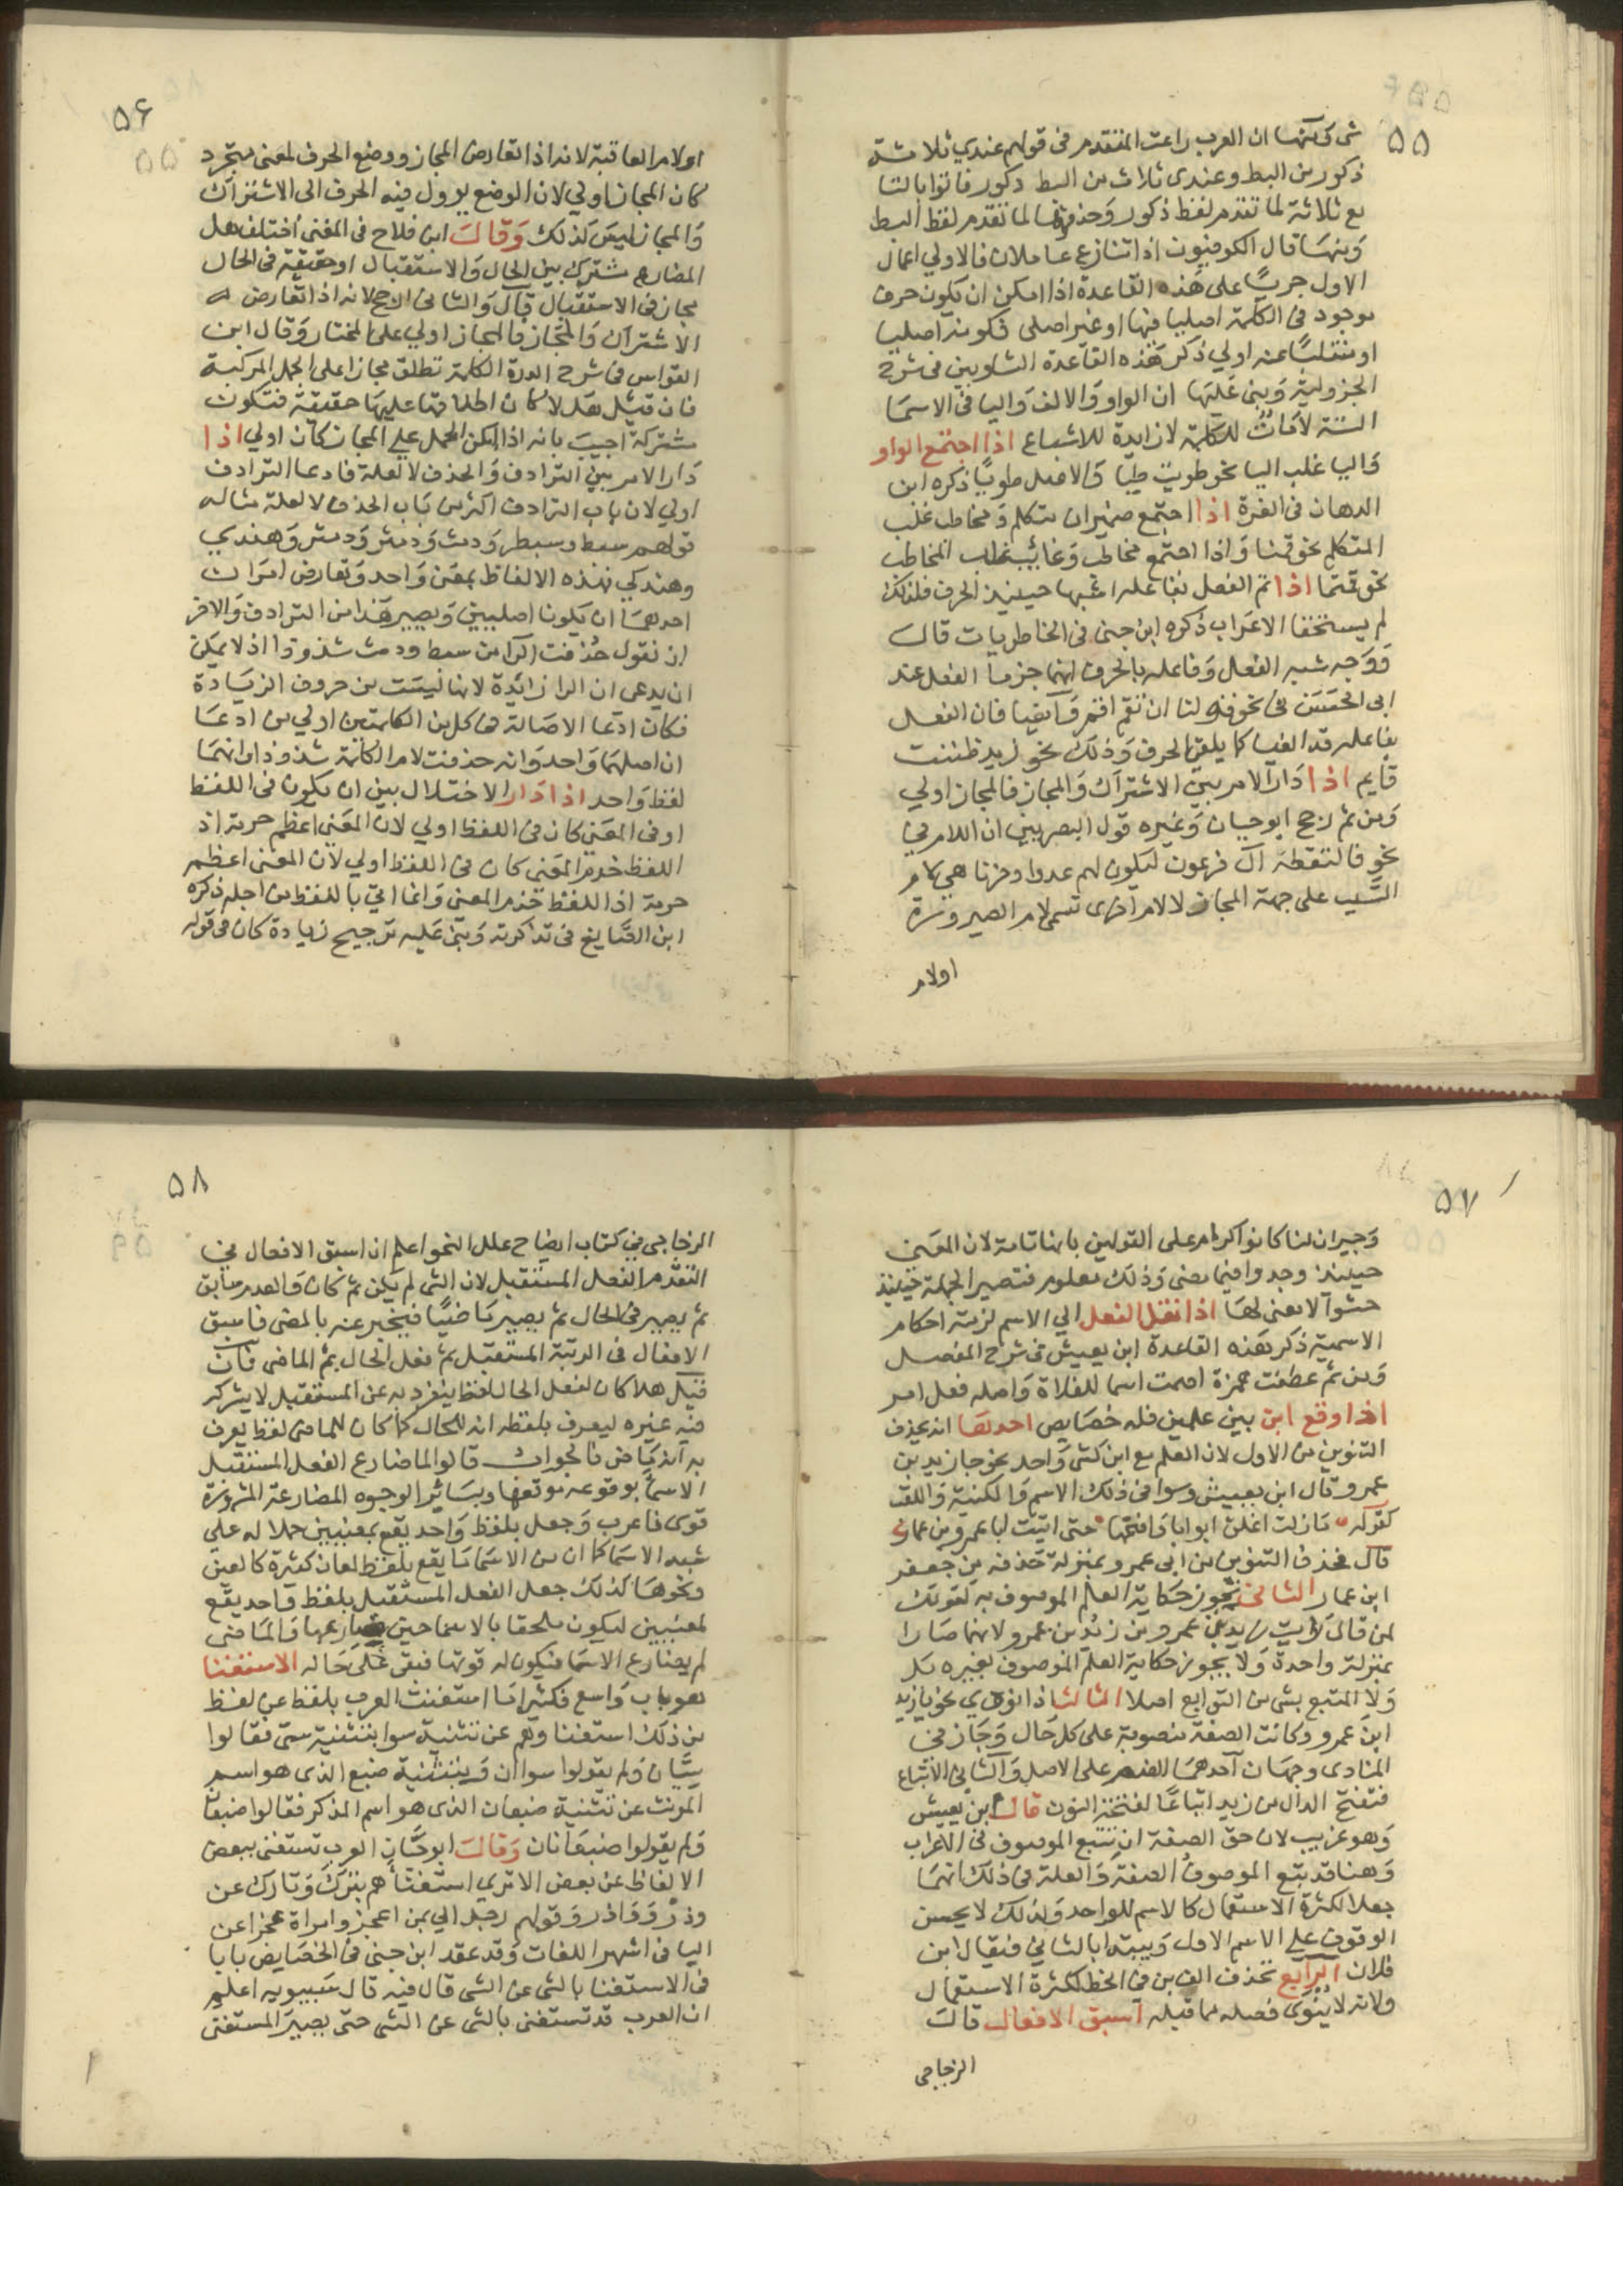 ٥٥
شى كى منها ان العرب راعت المتقدم فى قولهم عندي ثلاثة
ذكور من البط وعندى ثلاث من البط ذكور فاتوا بالتا
مع ثلاثة لما تقدم لفظ ذكور وحذفوها لما تقدم لفظ البط
ومنها قال الكوفيون اذا تنازع عاملان فالاولي اعمال
الاول جريًا على هذه القاعدة اذا امكن ان يكون حرف
موجود فى الكلمة اصليا فيها او غير اصلى فكونه اصليا
او منقلبًا عنه اولي ذكر هذه القاعدة الشلوبين فى شرح
الجزولية وبنى عليها ان الواو والالف واليا فى الاسما
الستة لامات للكلمة لا زايدة للاشباع اذا اجتمع الواو
واليا غلب اليا نحو طويت طيا والاصل طويًا ذكره ابن
الدهان فى الغرة اذا اجتمع ضميران متكلم ومخاطب غلب
المتكلم نحو قمنا واذا اجتمع مخاطب وغائب غلب المخاطب
نحو قمتما اذا تم الفعل بفاعله اشبها حينيذ الحرف فلذلك
لم يستحقا الاعراب ذكره ابن جنى فى الخاطريات قال
ووجه شبه الفعل وفاعله بالحرف انهما جزما الفعل عند
ابى الحسن فى نحو قوله لنا ان تقم اقم وايضا فان الفعل
بفاعله قد الغيا كما يلغى الحرف وذلك نحو زيد ظننت
قايم اذا دار الامر بين الاشتراك والمجاز فالمجاز اولي
ومن ثم رجح ابو حيان وغيره قول البصريين ان اللام فى
نحو فالتقطه آل فرعون ليكون لهم عدوا وحزنا هى لام
السبب على جهة المجاز لا لام اخرى تسمى لام الصيرورة
اولام
٥۶
اولام العاقبة لانه اذا تعارض المجاز ووضع الحرف لمعنى متجرد
كان المجاز اولي لان الوضع يوول فيه الحرف الى الاشتراك
والمجاز ليس كذلك وقال ابن فلاح فى المغنى اختلف هل
المضارع مشترك بين الحال والاستقبال او حقيقة فى الحال
مجاز فى الاستقبال قال والثانى ارجح لانه اذا تعارض
الاشتراك والمجاز فالمجاز اولي على المختار وقال ابن
القواس فى شرح الدرة الكلمة تطلق مجازا على الجمل المركبة
فان قيل هلا كان اطلاقها عليها حقيقة فتكون
مشتركة اجيب بانه اذا امكن الحمل على المجاز كان اولي اذا
دار الامر بين الترادف والحذف لا لعلة فادعا الترادف
اولي لان باب الترادف اكثر من باب الحذف لا لعلة مثاله
قولهم سبط وسبطر ودمث ودمثر ودمثر وهندي
وهندكي فهذه الالفاظ بمعنى واحد وتعارض امران
احدهما ان يكونا اصليين ويصير هذا من الترادف والاخر
ان نقول حذفت الرا من سبط ودمث شذوذا اذ لا يمكن
ان يدعى ان الرا زائدة لانها ليست من حروف الزيادة
فكان ادعا الاصالة فى كل من الكلمتين اولي من ادعا
ان اصلهما واحد وانه حذفت لام الكلمة شذوذا وانهما
لفظ واحد اذا دار الاختلال بين ان يكون فى اللفظ
او فى المعنى كان فى اللفظ اولي لان المعنى اعظم حرمة اذ
اللفظ خدم المعنى كان فى اللفظ اولي لان المعنى اعظم
حرمة اذ اللفظ خدم المعنى وانما اتي باللفظ من اجله ذكره
ابن الصايغ فى تذكرته وبنى عليه ترجيح زيادة كان فى قوله
٥٧
وجيران لنا كانوا كرام على القولين بانها تامة لان المعنى
حينيذ وجدوا فيما مضى وذلك معلوم فتصير الجملة حينيذ
حشوا لا معنى لها اذا نقل الفعل الي الاسم لزمته احكام
الاسمية ذكر هذه القاعدة ابن يعيش فى شرح المفصل
ومن ثم عطفت همزة اصمت اسما للفلاة واصله فعل امر
اذا وقع ابن بين علمين فله خصايص احدها انه يحذف
التنوين من الاول لان العلم مع ابن كشى واحد نحو جا زيد بن
عمرو قال ابن يعيش وسوا فى ذلك الاسم والكنية واللقب
كقوله ما زلت اغلق ابوابا وافتحها حتى اتيت ابا عمرو بن عمار
قال فحذف التنوين من ابى عمرو بمنزلة حذفه من جعفر
ابن عمار الثانى يجوز حكاية العلم الموصوف به كقولك
لمن قال رايت زيد بن عمرو من زيد بن عمرو لانهما صارا
بمنزلة واحدة ولا يجوز حكاية العلم الموصوف بغيره بل
ولا المتبع بشى من التوابع اصلا الثالث اذا نودي نحو يا زيد
ابن عمرو وكانت الصفة منصوبة على كل حال وجاز فى
المنادى وجهان احدهما الضم على الاصل والثانى الاتباع
فتفتح الدال من زيد اتباعًا لفتحة النون قال ابن يعيش
وهو غريب لان حق الصفة ان تتبع الموصوف فى الاعراب
وهنا قد تبع الموصوف الصفة والعلة فى ذلك انهما
جعلا لكثرة الاستعمال كالاسم الواحد ولذلك لا يحسن
الوقوف على الاسم الاول ويبتدا بالثاني فيقال ابن
فلان الرابع تحذف الف ابن فى الخط لكثرة الاستعمال
ولانه لا ينوى فصله مما قبله اسبق الافعال قال
الزجاجى
٥٨
الزجاجى فى كتاب ايضاح علل النحو اعلم ان اسبق الافعال فى
التقدم الفعل المستقبل لان الشى لم يكن ثم كان والعدم سابق
ثم يصير فى الحال ثم يصير ماضيًا فيخبر عنه بالمضى فاسبق
الافعال فى الرتبة المستقبل ثم فعل الحال ثم الماضى فان
قيل هلا كان لفعل الحال لفظ ينفرد به عن المستقبل لا يشركه
فيه غيره ليعرف بلفظه انه للحال كما كان للماضى لفظ يعرف
به انه ماض فالجواب قالوا لما ضارع الفعل المستقبل
الاسما بوقوعه موقعها وبسائر الوجوه المضارعة المشهورة
قوى فاعرب وجعل بلفظ واحد يقع بمعنيين حملا له على
شبه الاسما كما ان من الاسما ما يقع بلفظ لمعان كثيرة كالعين
ونحوها كذلك جعل الفعل المستقبل بلفظ واحد يقع
لمعنيين ليكون ملحقا بالاسما حين ضارعها والماضى
لم يضارع الاسما فيكون له قوتها فبقى على حاله الاستغنا
هو باب واسع فكثيرا ما استغنت العرب بلفظ عن لفظ
من ذلك استغناوهم عن تثنية سوا بتثنية سى فقالوا
سيان ولم يقولوا سواان وبتثنية ضبع الذى هو اسم
المونث عن تثنية ضبعان الذى هو اسم المذكر فقالوا ضبعان
ولم يقولوا ضبعانان وقال ابو حيان العرب تستغنى ببعض
الالفاظ عن بعض الا ترى استغناهم بترك وتارك عن
وذر وواذر وقولهم رجل الي بمن اعجز وامراة عجزا عن
اليا فى اشهر اللغات وقد عقد ابن جنى فى الخصايص بابا
فى الاستغنا بالشى عن الشى قال فيه قال سيبويه اعلم
ان العرب قد تستغنى بالشى عن الشى حتى يصير المستغنى